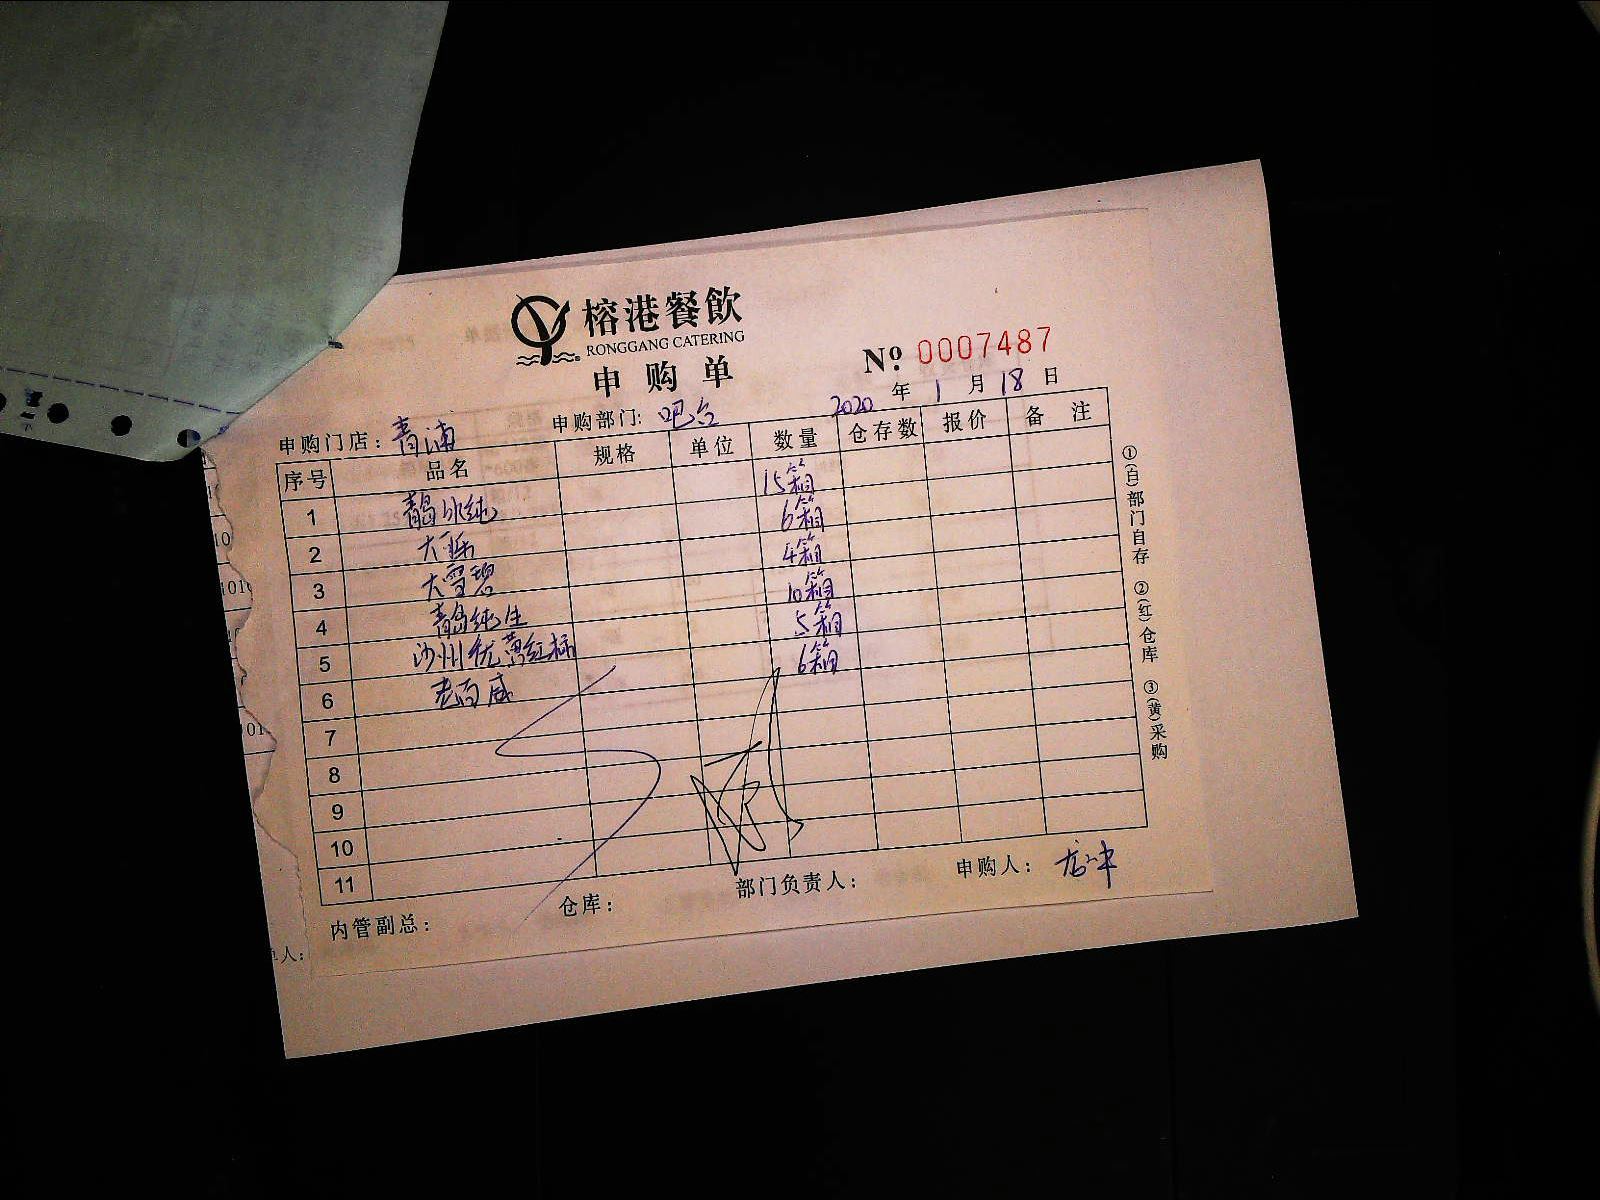 榕港餐飲
RONGGANG CATERING
申购单
№ 0007487
2020 年 1 月 18 日
申购门店：青浦 申购部门：吧台
序号 品名 规格 单位 数量 仓存数 报价 备注
1 青岛冰纯 15箱
2 大 6箱
3 大雪碧 4箱
4 青岛纯生 10箱
5 沙州优黄红标 5箱
6 老百威 6箱
7
8
9
10
11
内管副总： 仓库： 部门负责人： 申购人：
①(白)部门自存 ②(红)仓库 ③(黄)采购